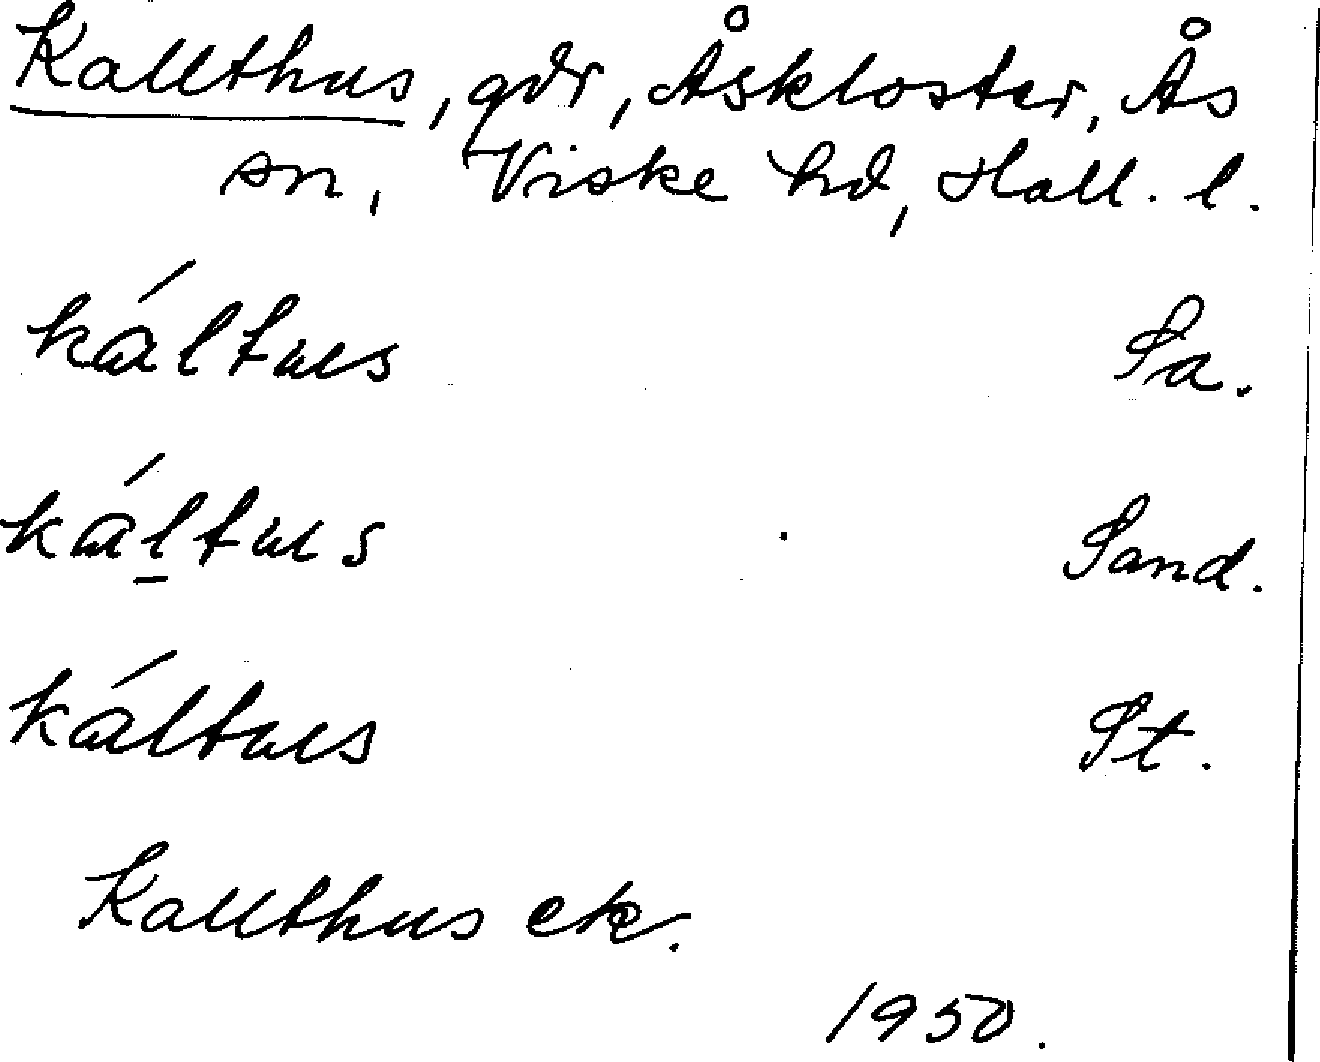 Kallthus, gdr, Åskloster, Ås
sn, Viske hd, Hall. l.
káltus Sa.
káltus Sand.
káltus St.
Kallthus ek.
1950.